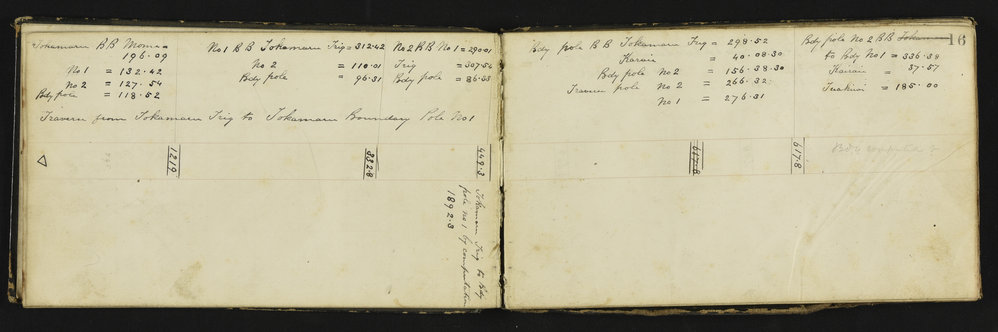 Tokamaru BB Moma =
196.09
No 1 = 132.42
No 2 = 127.54
Bdy pole = 118.52
No 1 BB Tokamaru Trig = 312.42
No 2 = 110.01
Bdy pole = 96.31
No 2 BB No 1 = 290.01
Trig = 307.54
Bdy pole = 86.53
Traverse from Tokamaru Trig to Tokamaru Boundary Pole No 1
1219
332.8
449.3
Tokamaru Trig to Bdy
pole no 1 by computation
1892.3
16
Bdy pole BB Tokamaru Trig = 298.52
Karari = 40.08.30
Bdy pole No 2 = 156.38.30
Traverse pole No 2 = 266.32
No 1 = 276.31
Bdy pole No 2 BB
to Bdy No 1 = 336.39
Karari = 37.57
= 185.00
617.8
617.8